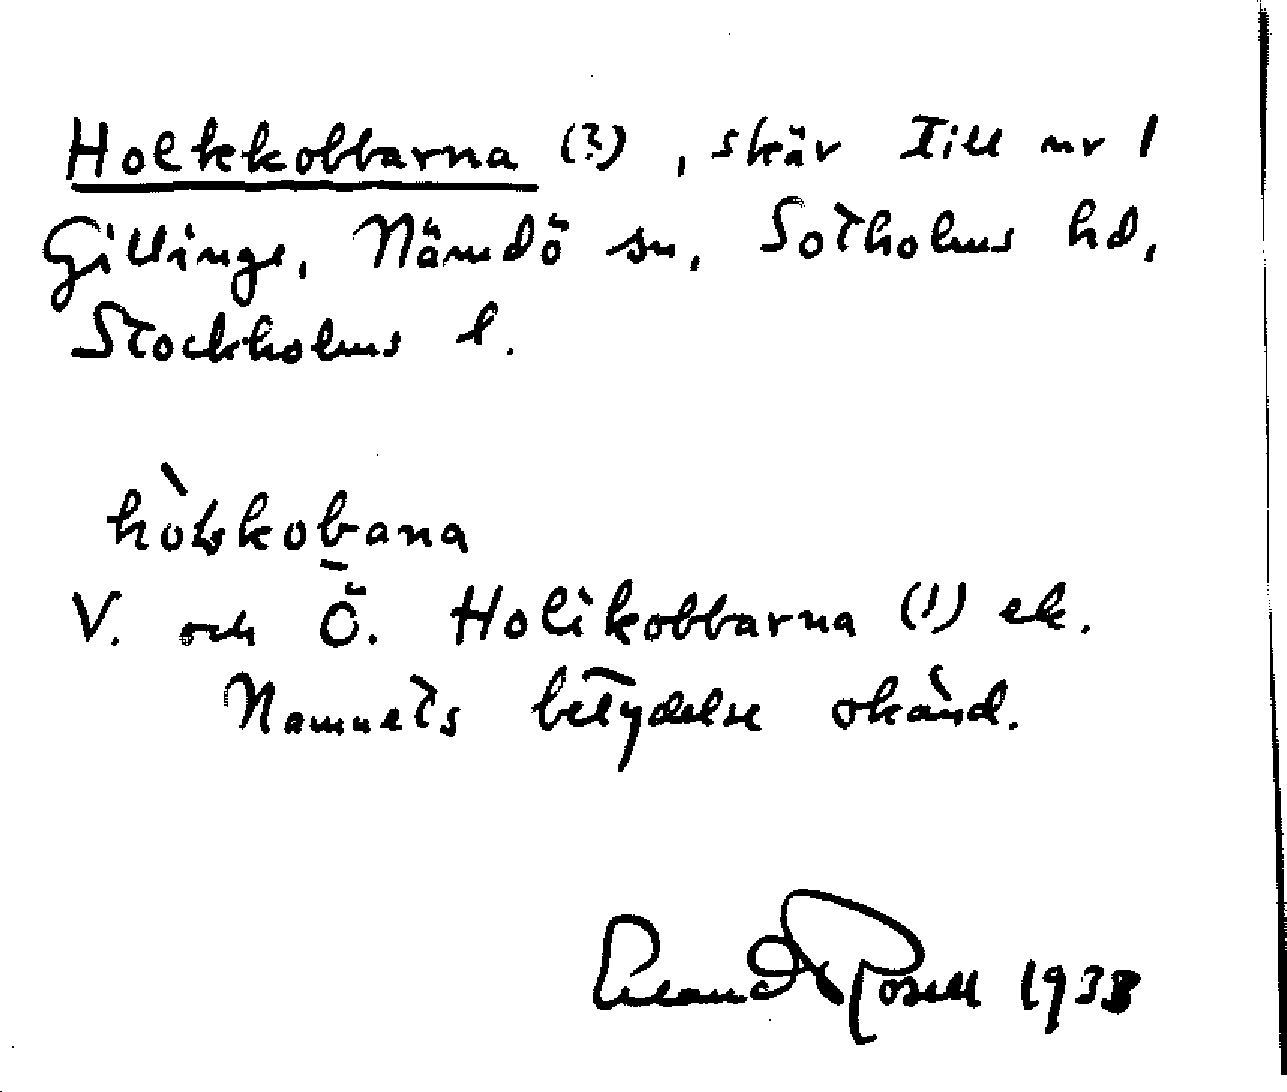 Holkkobbarna (?), skär Till nr 1
Gillinge, Nämdö sn, Sotholms hd,
Stockholms l.
hòlskobana
V. och Ö. Holikobbarna (!) ek.
Namnets betydelse okänd.
Erland Rosell 1938